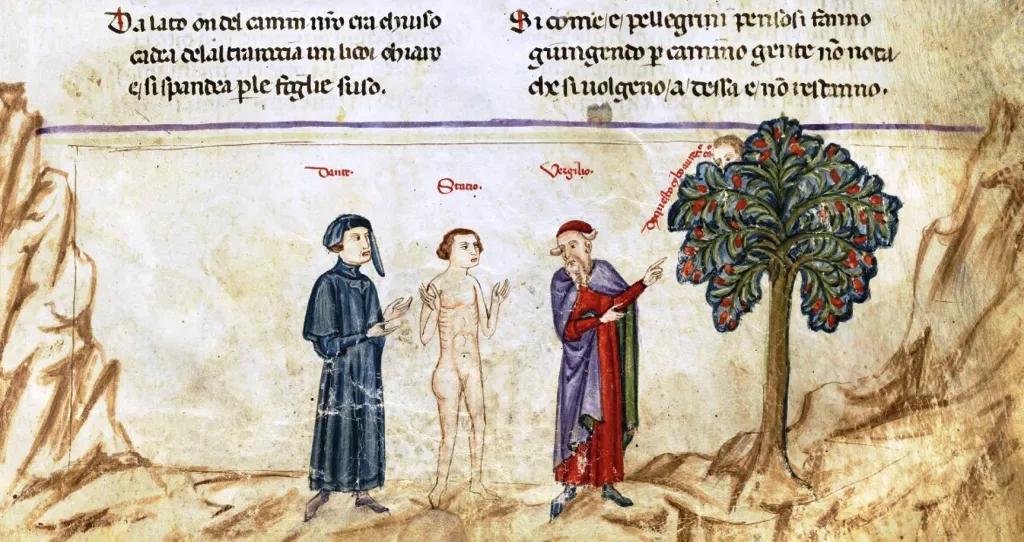 Da lato on del camin nr̄o era chiuso
cadea del alta roccia un licor chiaro
e/ si spandea p̲ le foglie suso.
Si come/ e/ pellegrini pensosi fanno
giungendo p̲ camino gente nō nota
che si uolgeno/ a/ dessa e/ nō restanno.
Dante.
Stacio.
Vergilio.
questo cybo aurete